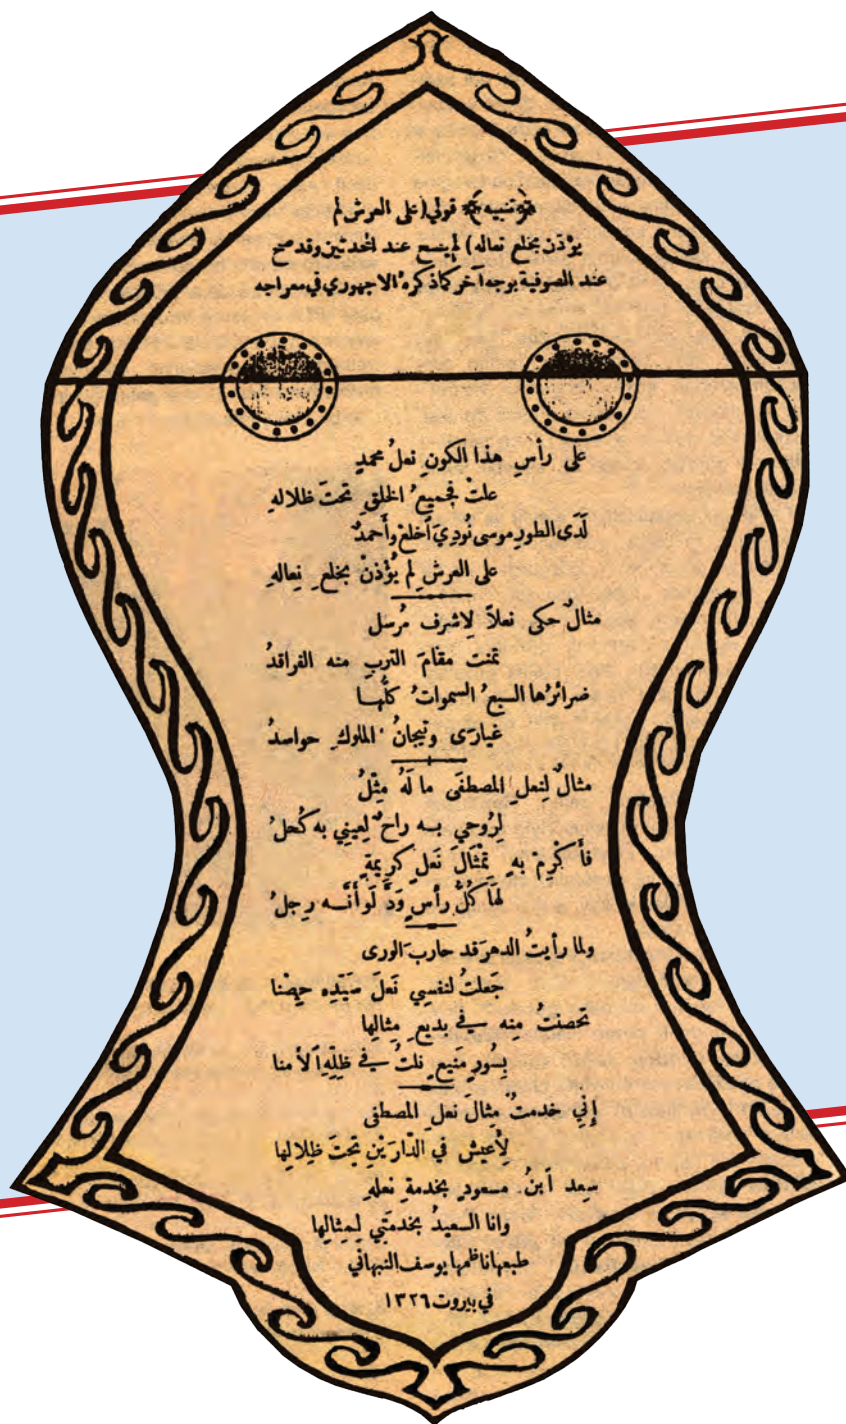 ﴿تنبيه﴾ قولي (على العرش لم
يؤذن بخلع نعاله) لم يسع عند المحدثين وقد صح
عند الصوفية بوجه آخر كما ذكره الاجهوري في معراجه
على رأسِ هذا الكونِ نعلُ محمدٍ
علتْ فجميعُ الخلقِ تحتَ ظلالهِ
لَدَى الطورِ موسى نُودِيَ أخلعْ وأحمدٌ
على العرشِ لم يُؤذنْ بخلعِ نِعالهِ
مثالٌ حكى نعلاً لِاشرف مُرسل
تمنت مقامَ التربِ منه الفراقدُ
ضرائرُها السبعُ السمواتُ كلُّها
غيارَى وتيجانُ الملوكِ حواسدُ
مثالٌ لِنعلِ المصطفَى ما لَهُ مِثْلُ
لِرُوحي به راحٌ لِعيني به كُحلُ
فأَكْرِمْ بهِ تِمْثَالَ نَعلٍ كريمةٍ
لهَا كُلُّ رأسٍ وَدَّ لَو أنَّه رِجلُ
ولما رأيتُ الدهرَ قد حاربَ الورى
جَعلتُ لنفسِي نَعلَ سَيّدِه حِصْنا
تحصنتُ مِنه في بديعِ مِثالِها
بِسُورٍ مَنيعٍ نلتُ في ظلِّهِ الأمنا
إني خدمتُ مثالَ نعلِ المصطفى
لِأعيش في الدّارَيْنِ تحتَ ظِلالِها
سعِد ابنُ مسعودٍ بخدمةِ نعلهِ
وانا السعيدُ بخدمَتِي لِمِثالِها
طبعها ناظمها يوسف النبهاني
في بيروت ١٣٢٦